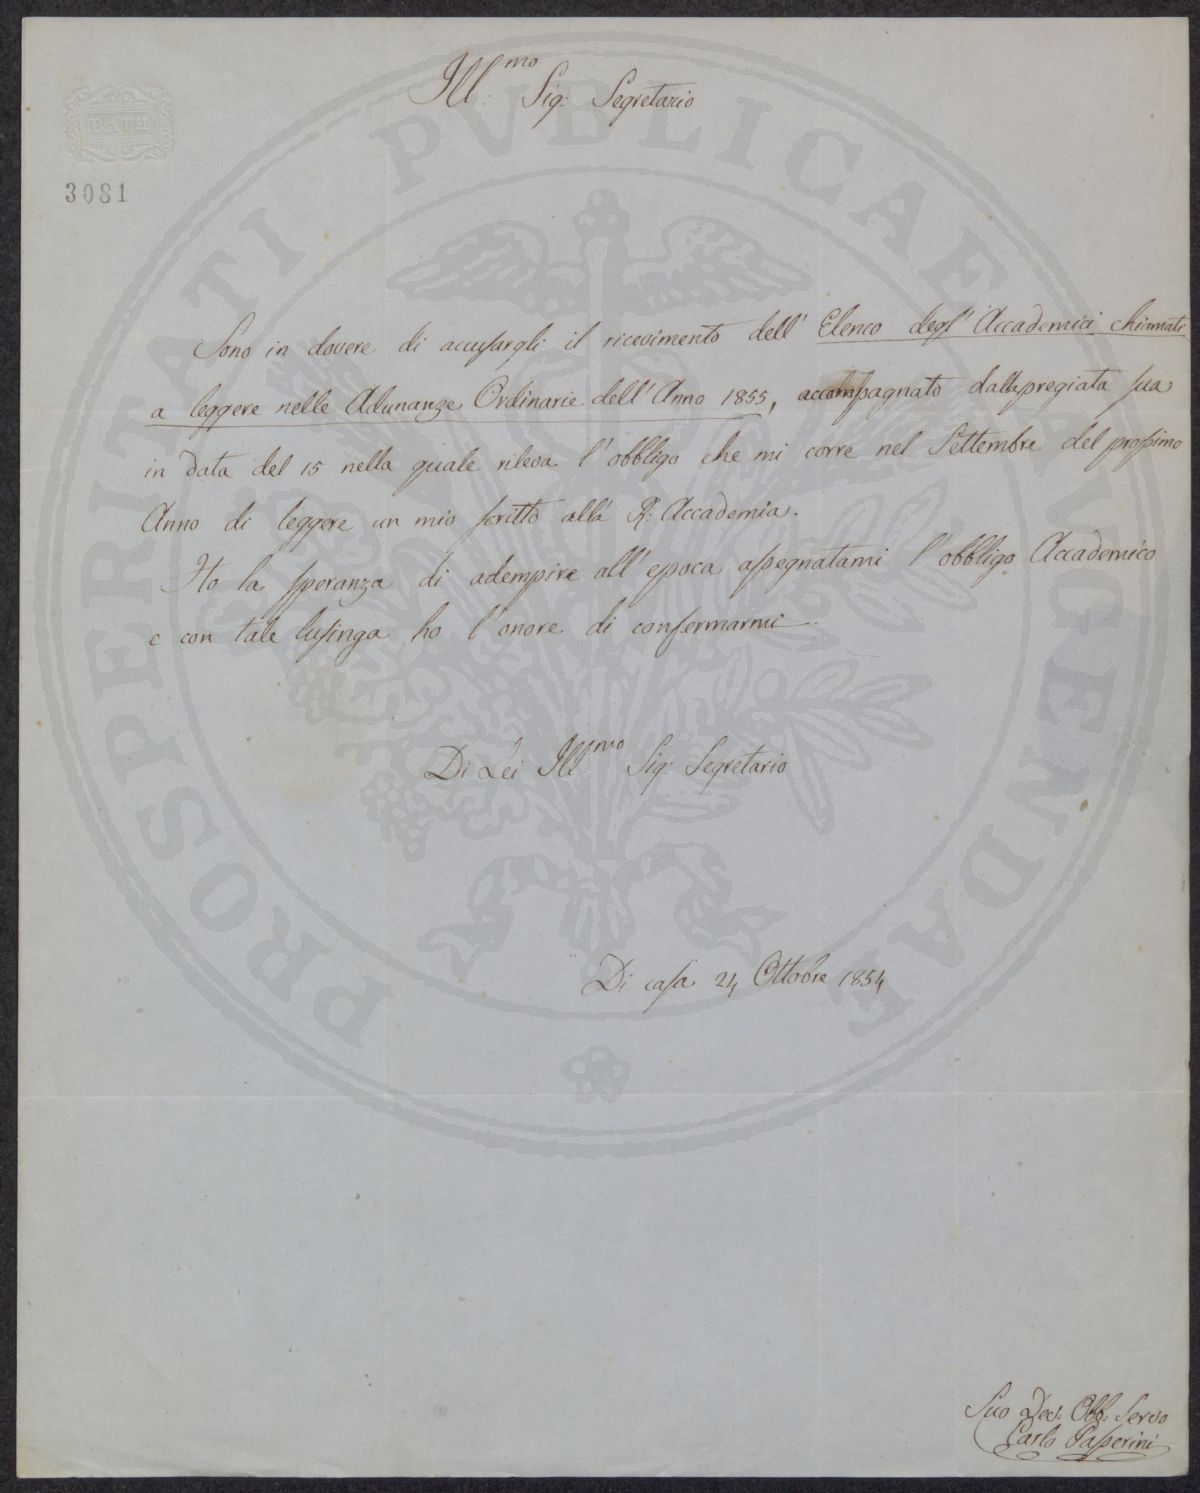 Ill:mo Sig: Segretario
BATH
3081
Sono in dovere di accusargli il ricevimento dell' Elenco degl' Accademici chiamati
a leggere nelle Adunanze Ordinarie dell' Anno 1855, accompagnato dalla pregiata sua
in data del 15 nella quale rileva l'obbligo che mi corre nel Settembre del prossimo
Anno di leggere un mio scritto alla R: Accademia.
Ho la speranza di adempire all' epoca assegnatami l'obbligo Accademico
e con tale lusinga ho l'onore di confermarmi
Di Lei Ill:mo Sig: Segretario
Di casa 24 Ottobre 1854
Suo Dev: Obb: Servo
Carlo Passerini
PROSPERITATI PVBLICAE AVGENDAE